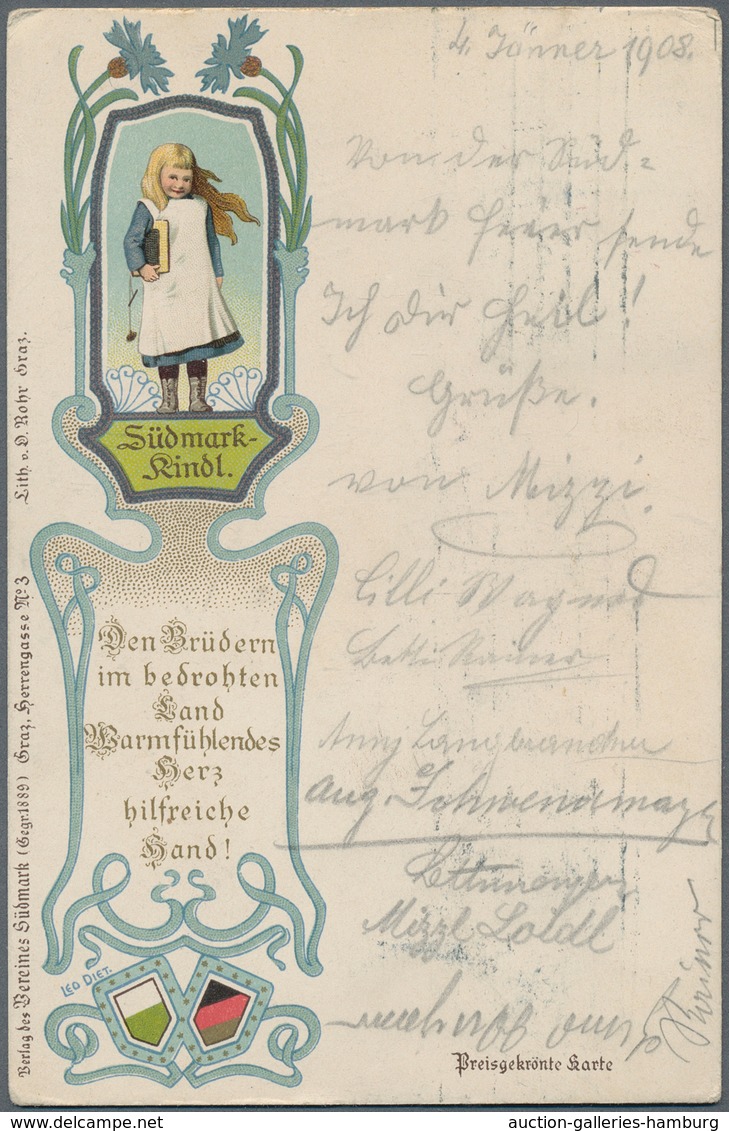 4. Jänner 1908.
Von der Süd=
mark feier sende
Ich dir Heil!
Grüße.
von Mizzi.
Lilli Wagner
Betti Rainer
Anny
Aug.
Mizzl Loidl
Südmark-
Kindl.
Den Brüdern
im bedrohten
Land
Warmfühlendes
Herz
hilfreiche
Hand!
LEO DIET.
Preisgekrönte Karte
Lith. v. O. Rohr Graz.
Verlag des Vereines Südmark (Gegr. 1889) Graz, Herrengasse No. 3
auction-galleries-hamburg